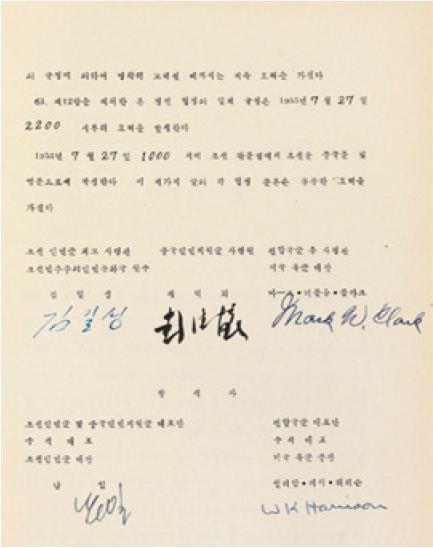 의 규정에 의하여 명확히 교체될 때까지는 계속 효력을 가진다
63. 제12항을 제외한 본 정전 협정의 일체 규정은 1953년 7 월 27 일
2200 시부터 효력을 발생한다
1953년 7 월 27 일 1000 시에 조선 판문점에서 조선문 중국문 및
영문으로써 작성한다 이 세가지 글의 각 협정 문본은 동등한 효력을
가진다
조선 인민군 최고 사령관 중국인민지원군 사령원 련합국군 총 사령관
조선민주주의인민공화국 원수 미국 륙군 대장
김 일 성 팽 덕 회 마ー크・더블유・클라크
김일성 彭德懷 Mark W. Clark
참 석 자
조선인민군 및 중국인민지원군 대표단 련합국군 대표단
수 석 대 표 수 석 대 표
조선인민군 대장 미국 륙군 중장
남 일 윌리암・케이・해리슨
남일 W K Harrison